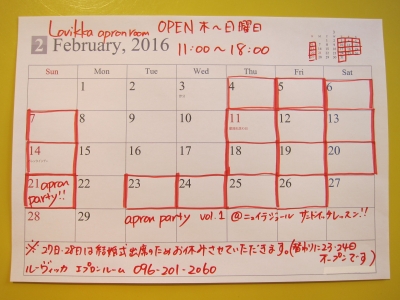 Lovikka apron room OPEN 木〜日曜日
2 February, 2016 11:00〜18:00
Sun Mon Tue Wed Thu Fri Sat
1 2 3 4 5 6
7 8 9 10 11 12 13
14 15 16 17 18 19 20
21 apron party!! 22 23 24 25 26 27
28 29 apron party vol.1 @ニュイラジョール サンドイッチレッスン!!
※27日・28日は結婚式出席のためお休みさせていただきます。(替わりに23・24日
オープンでーす)
ルーヴィッカ エプロンルーム 096-201-2060